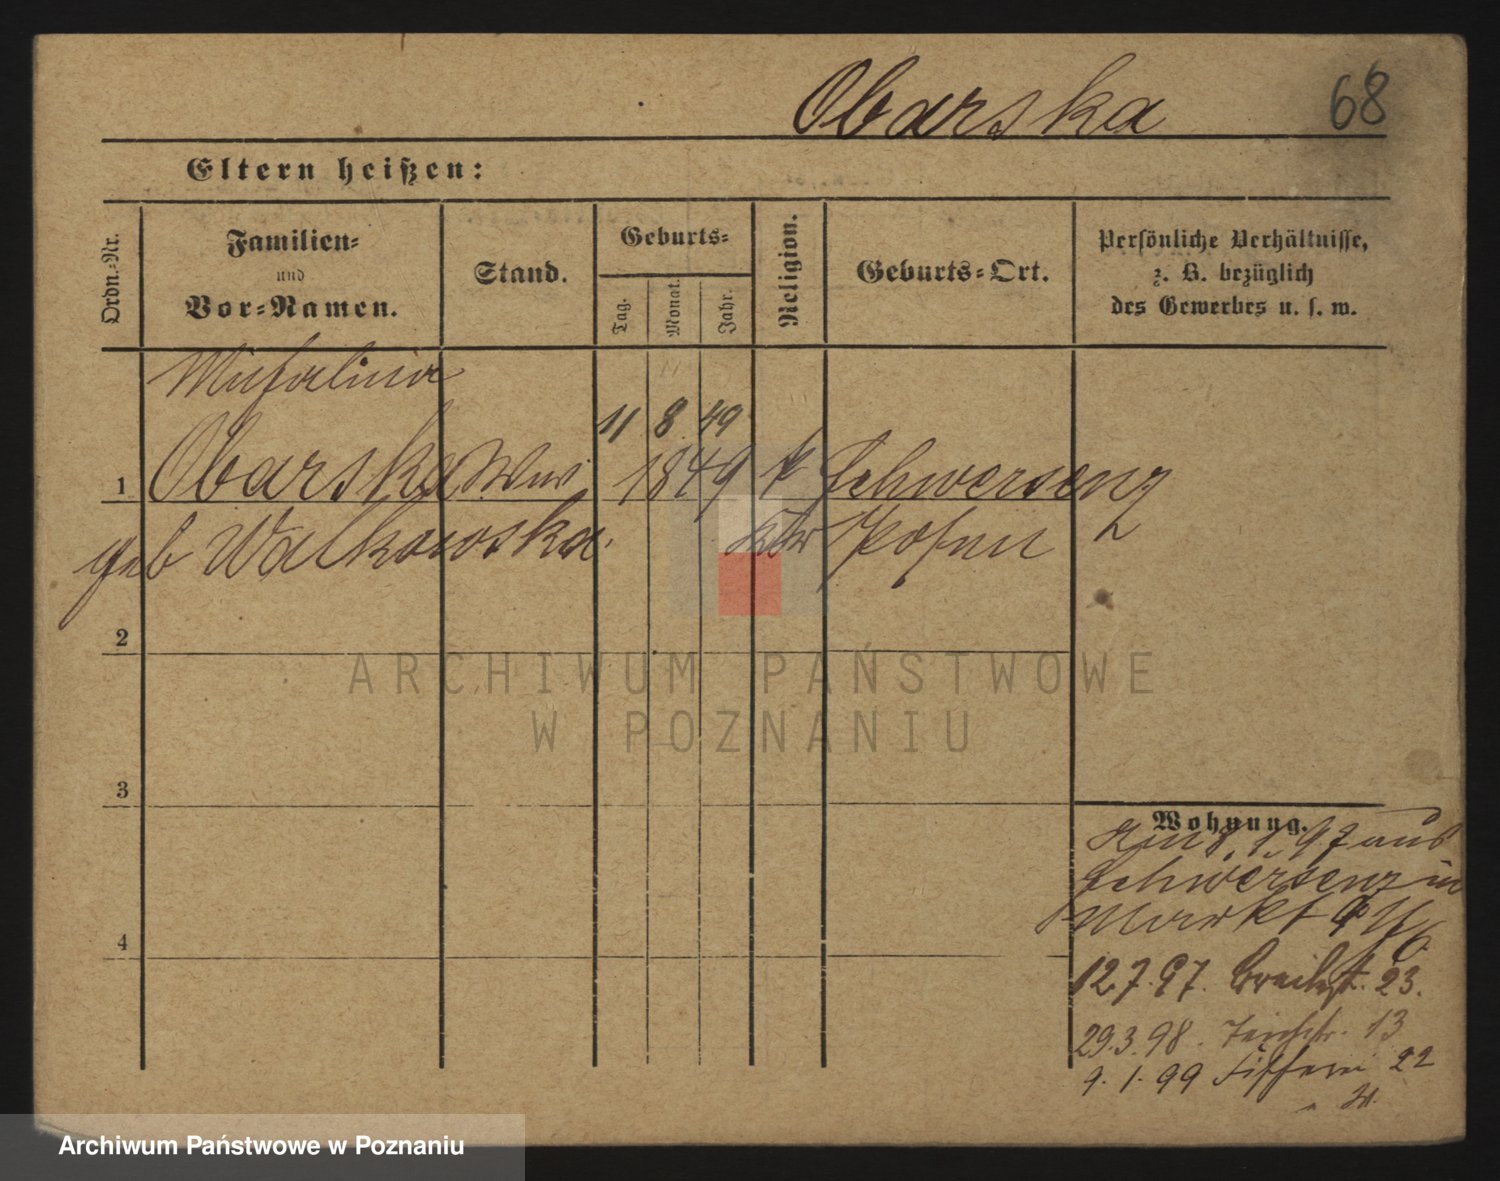 Obarska
68
Eltern heißen:
Ordn.-Nr.
Familien-
und
Vor-Namen.
Stand.
Geburts-
Tag.
Monat.
Jahr.
Religion.
Geburts-Ort.
Persönliche Verhältnisse,
z. B. bezüglich
des Gewerbes u. s. w.
11 8 49
1 Obarska Wwe 1849 k Schwersenz
geb Walkowska. Posen
2
3
4
Wohnung.
97 aus
Schwersenz in
Markt
12.7.97. Breitestr. 23.
29.3.98. 13
9.1.99 22
ARCHIWUM PAŃSTWOWE
W POZNANIU
Archiwum Państwowe w Poznaniu